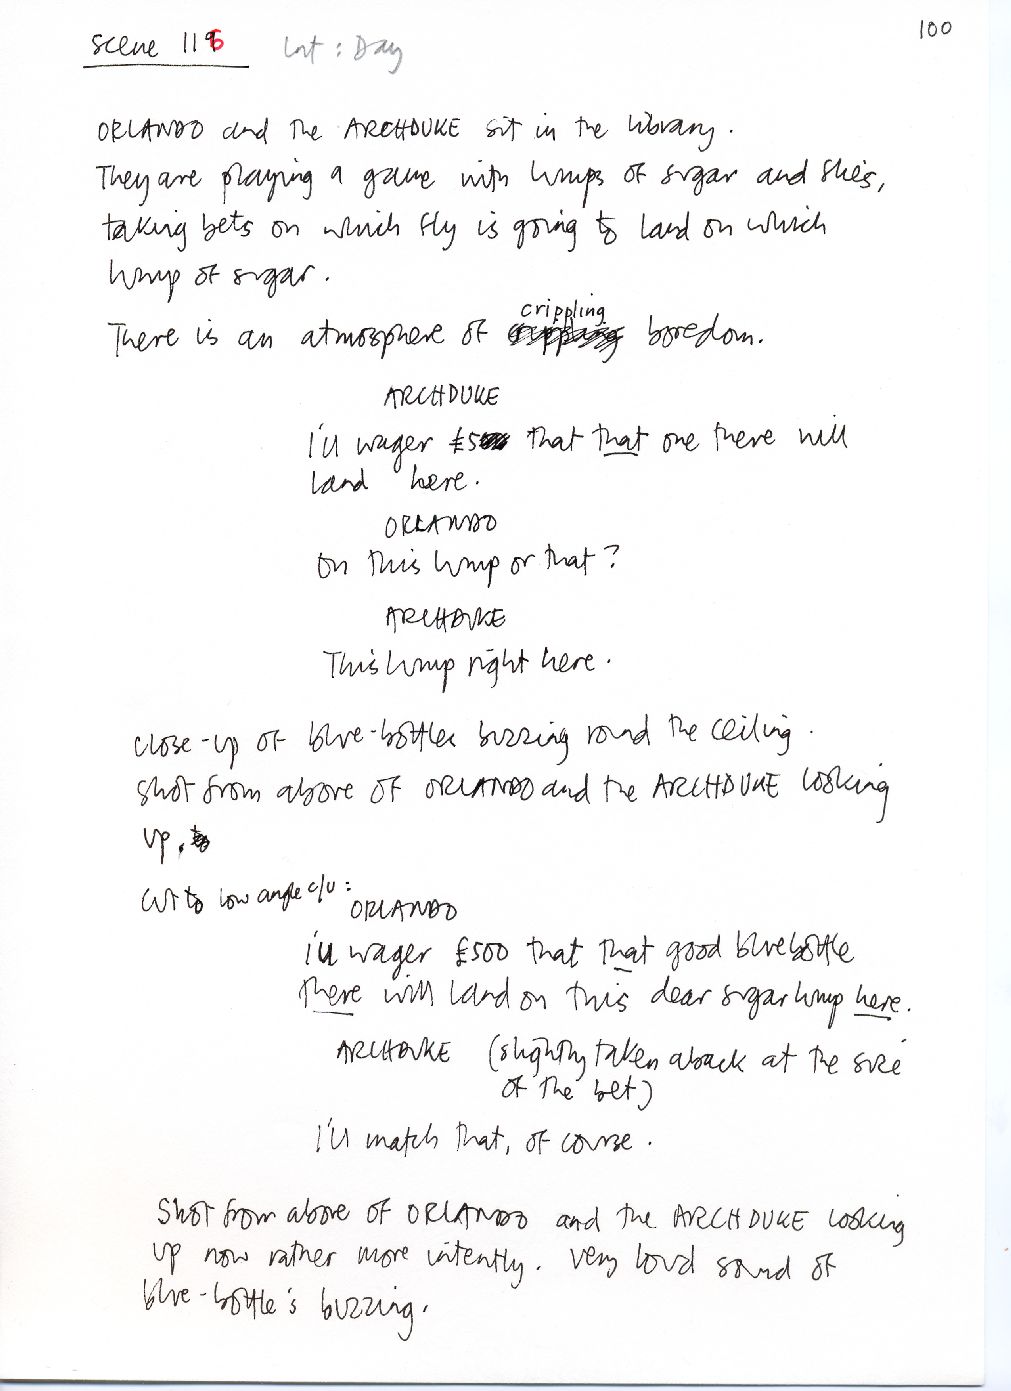 100
Scene 116 Int : Day
ORLANDO and the ARCHDUKE sit in the library.
They are playing a game with lumps of sugar and flies,
taking bets on which fly is going to land on which
lump of sugar.
crippling
There is an atmosphere of boredom.
ARCHDUKE
I'll wager £5 that that one there will
land here.
ORLANDO
On this lump or that?
ARCHDUKE
This lump right here.
Close-up of blue-bottles buzzing round the ceiling.
Shot from above of ORLANDO and the ARCHDUKE looking
up.
Cut to low angle c/u :
ORLANDO
I'll wager £500 that that good bluebottle
there will land on this dear sugar lump here.
ARCHDUKE (slightly taken aback at the size
of the bet)
I'll match that, of course.
Shot from above of ORLANDO and the ARCHDUKE looking
up now rather more intently. Very loud sound of
blue-bottle's buzzing.